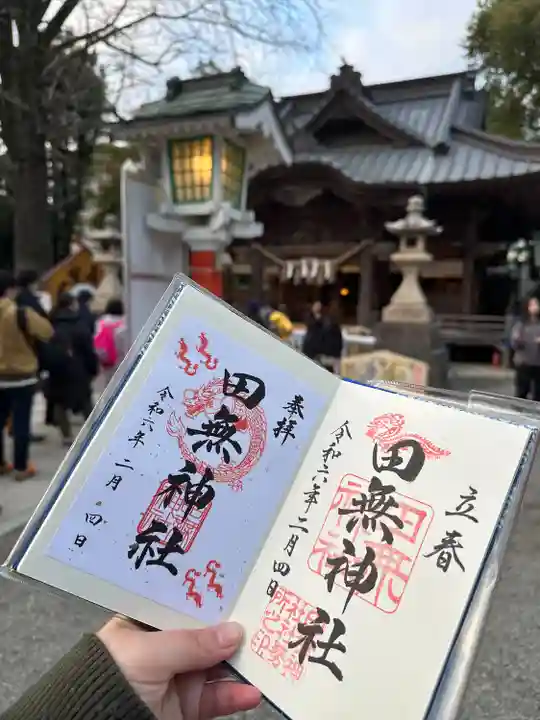 立春
田無神社
令和六年二月四日
奉拝
田無神社
令和六年二月四日